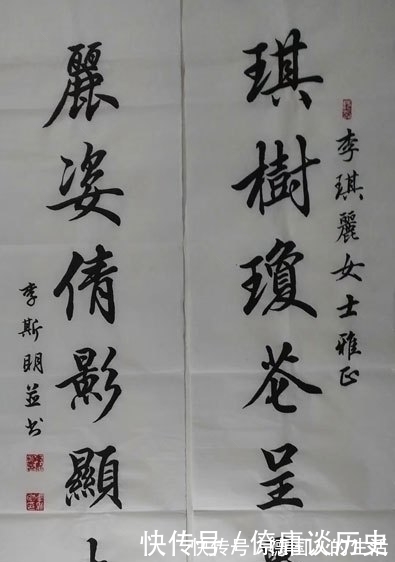 李琪麗女士雅正
琪樹瓊花呈
麗姿倩影顯
李斯明並书
快传号/康谈历史
快传号/的生活